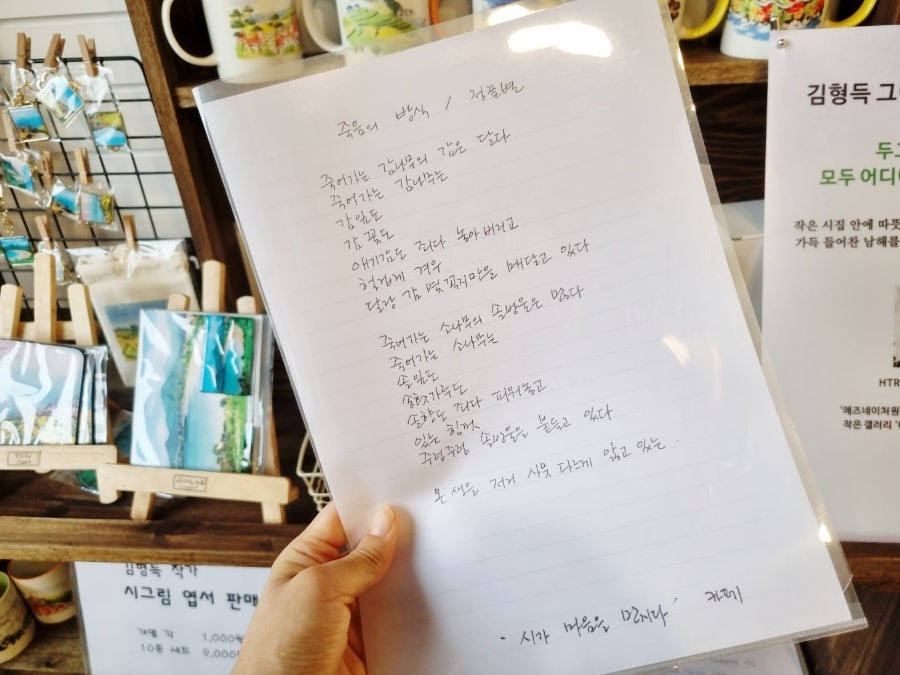 죽음의 방식 / 정끝별
죽어가는 감나무의 감은 달다
죽어가는 감나무는
감잎도
감꽃도
애기감도 죄다 놓아버리고
힘겹게 겨우
달랑 감 몇 꼭지만을 매달고 있다
죽어가는 소나무의 솔방울은 많다
죽어가는 소나무는
솔잎도
송홧가루도
솔향도 죄다 피워놓고
있는 힘껏
주렁주렁 솔방울을 붙들고 있다
몬 생을 저저 사뭇 다르게 앓고 있는.
"시가 마음을 만지다" 카페
김형득 그
두고
모두 어디에
작은 시집 안에 따뜻
가득 들어찬 남해를
HTR
'헤즈네이처원
작은 갤러리
김형득 작가
시그림 엽서 판매
개별 각 1,000원
10종 세트 9,000